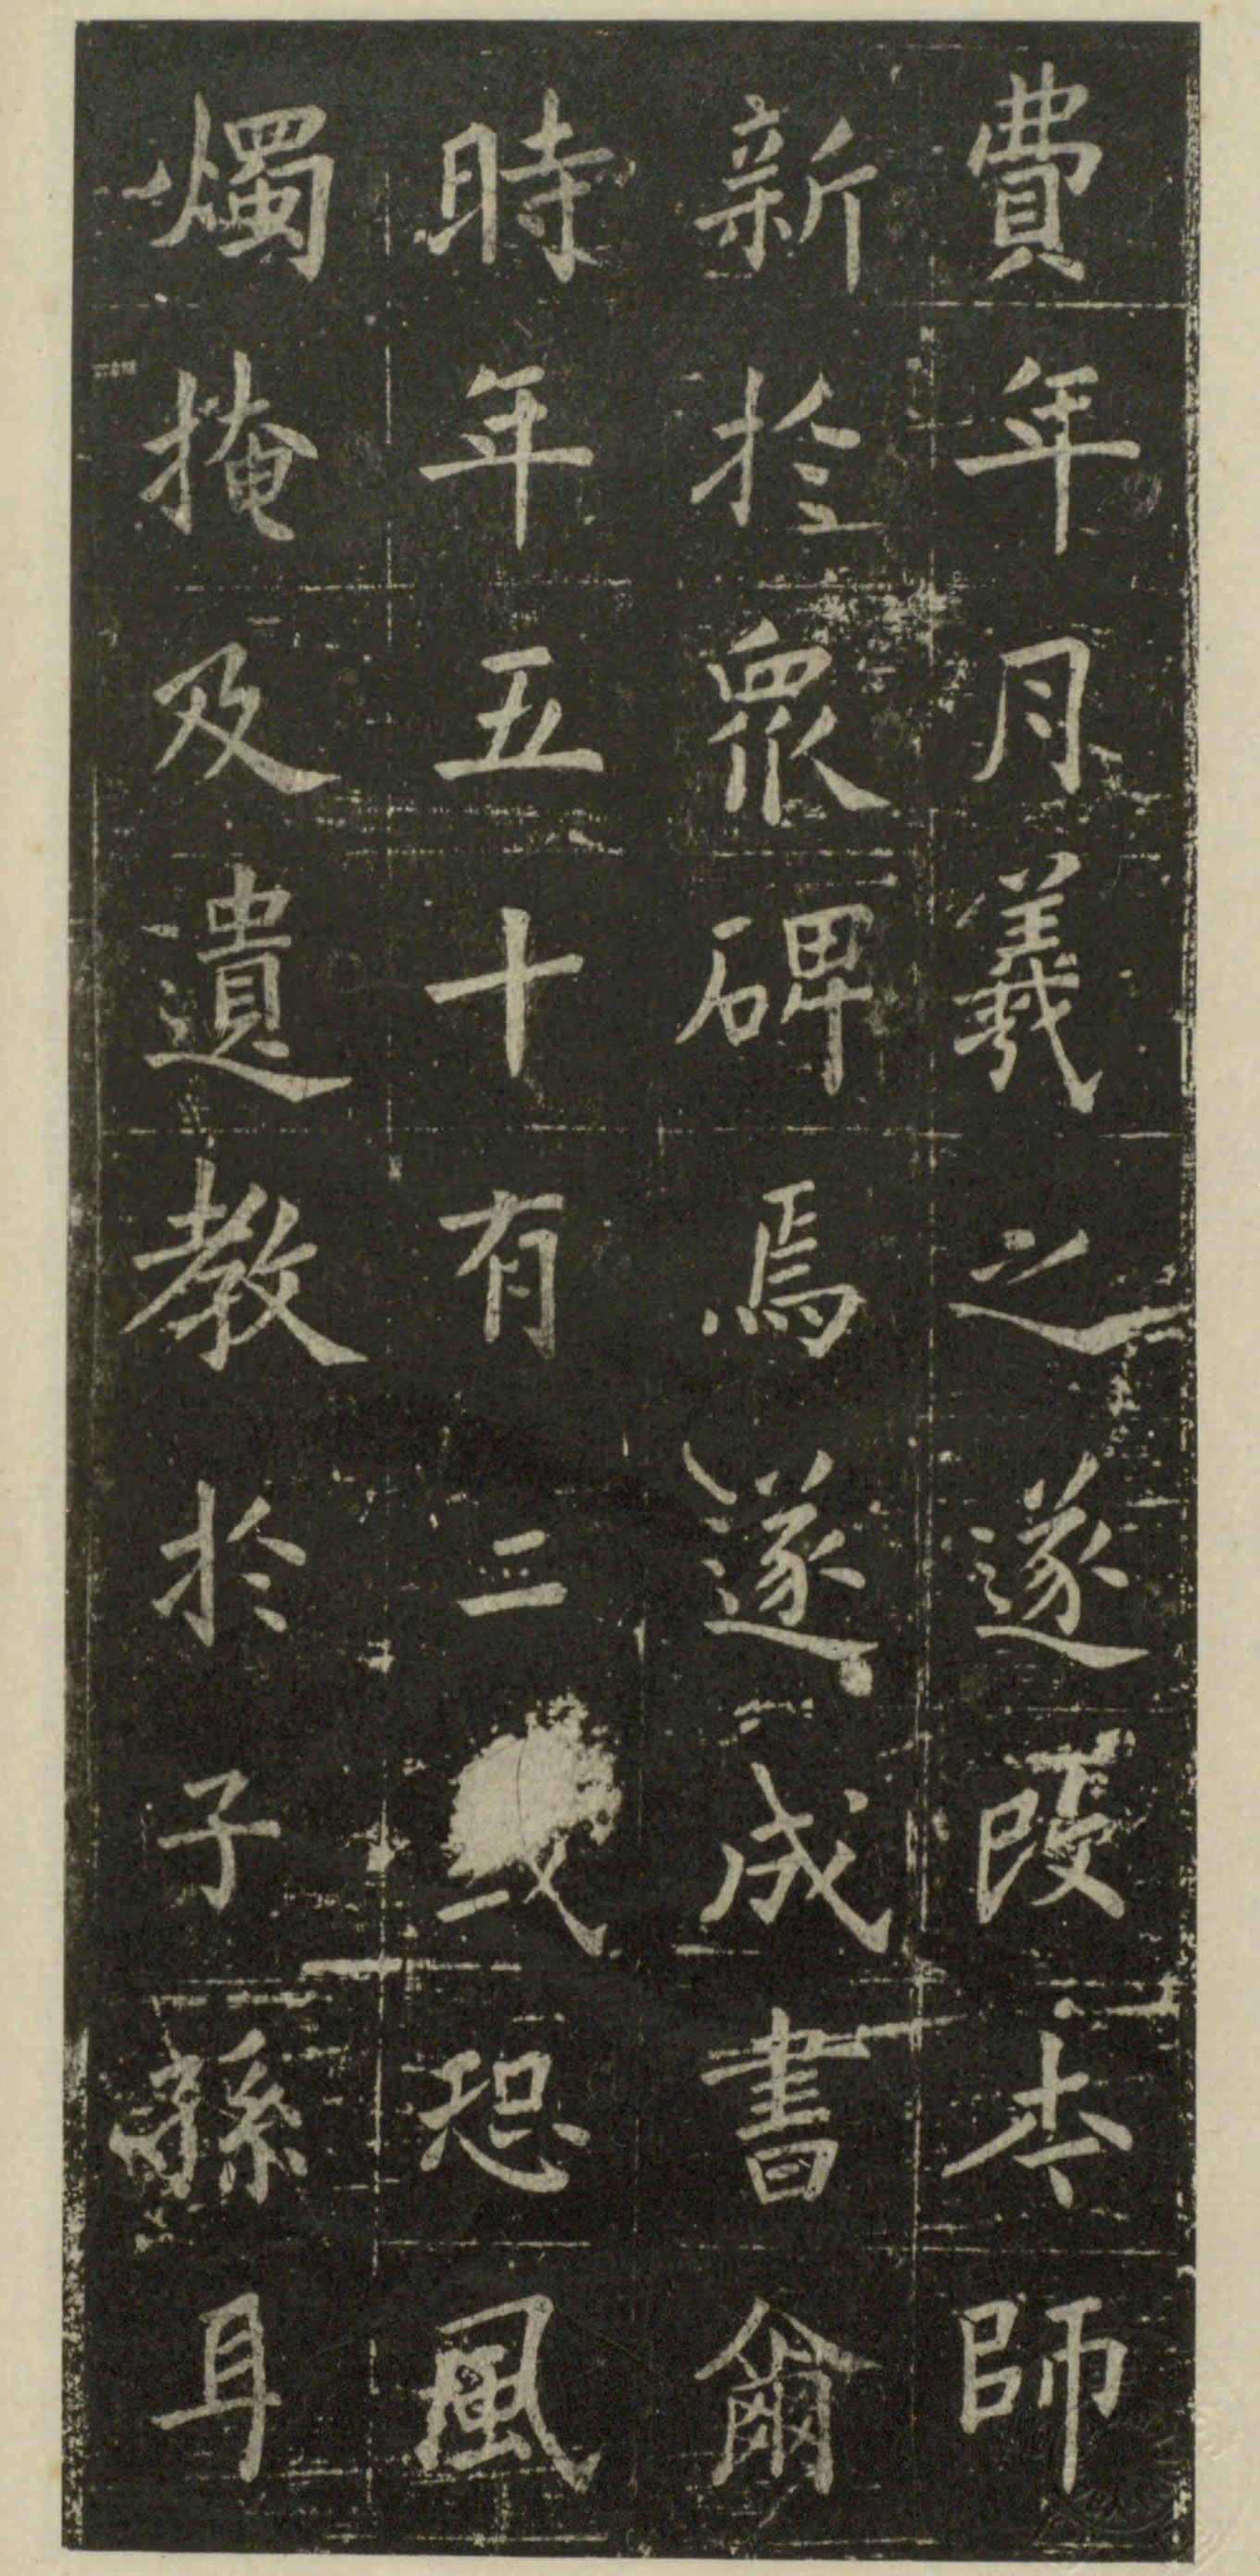 費年月羲之遂改本師
新於衆碑焉遂成書爾
時年五十有三或恐風
燭掩及遺教於子孫耳